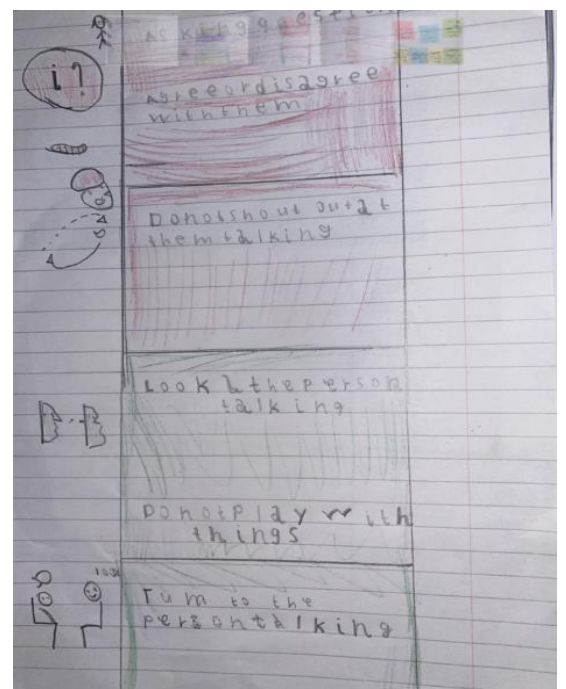 Asking questions
i?
Agree or disagree
with them
Do not shout out at
them talking
Look at the person
talking
Do not play with
things
Turn to the
person talking